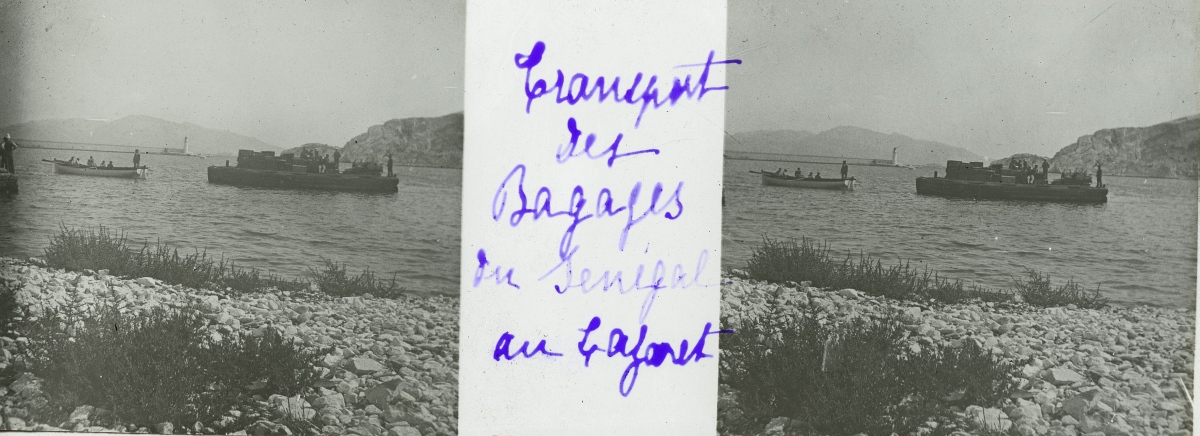 Transport
des
Bagages
du Sénégal
au Lazaret